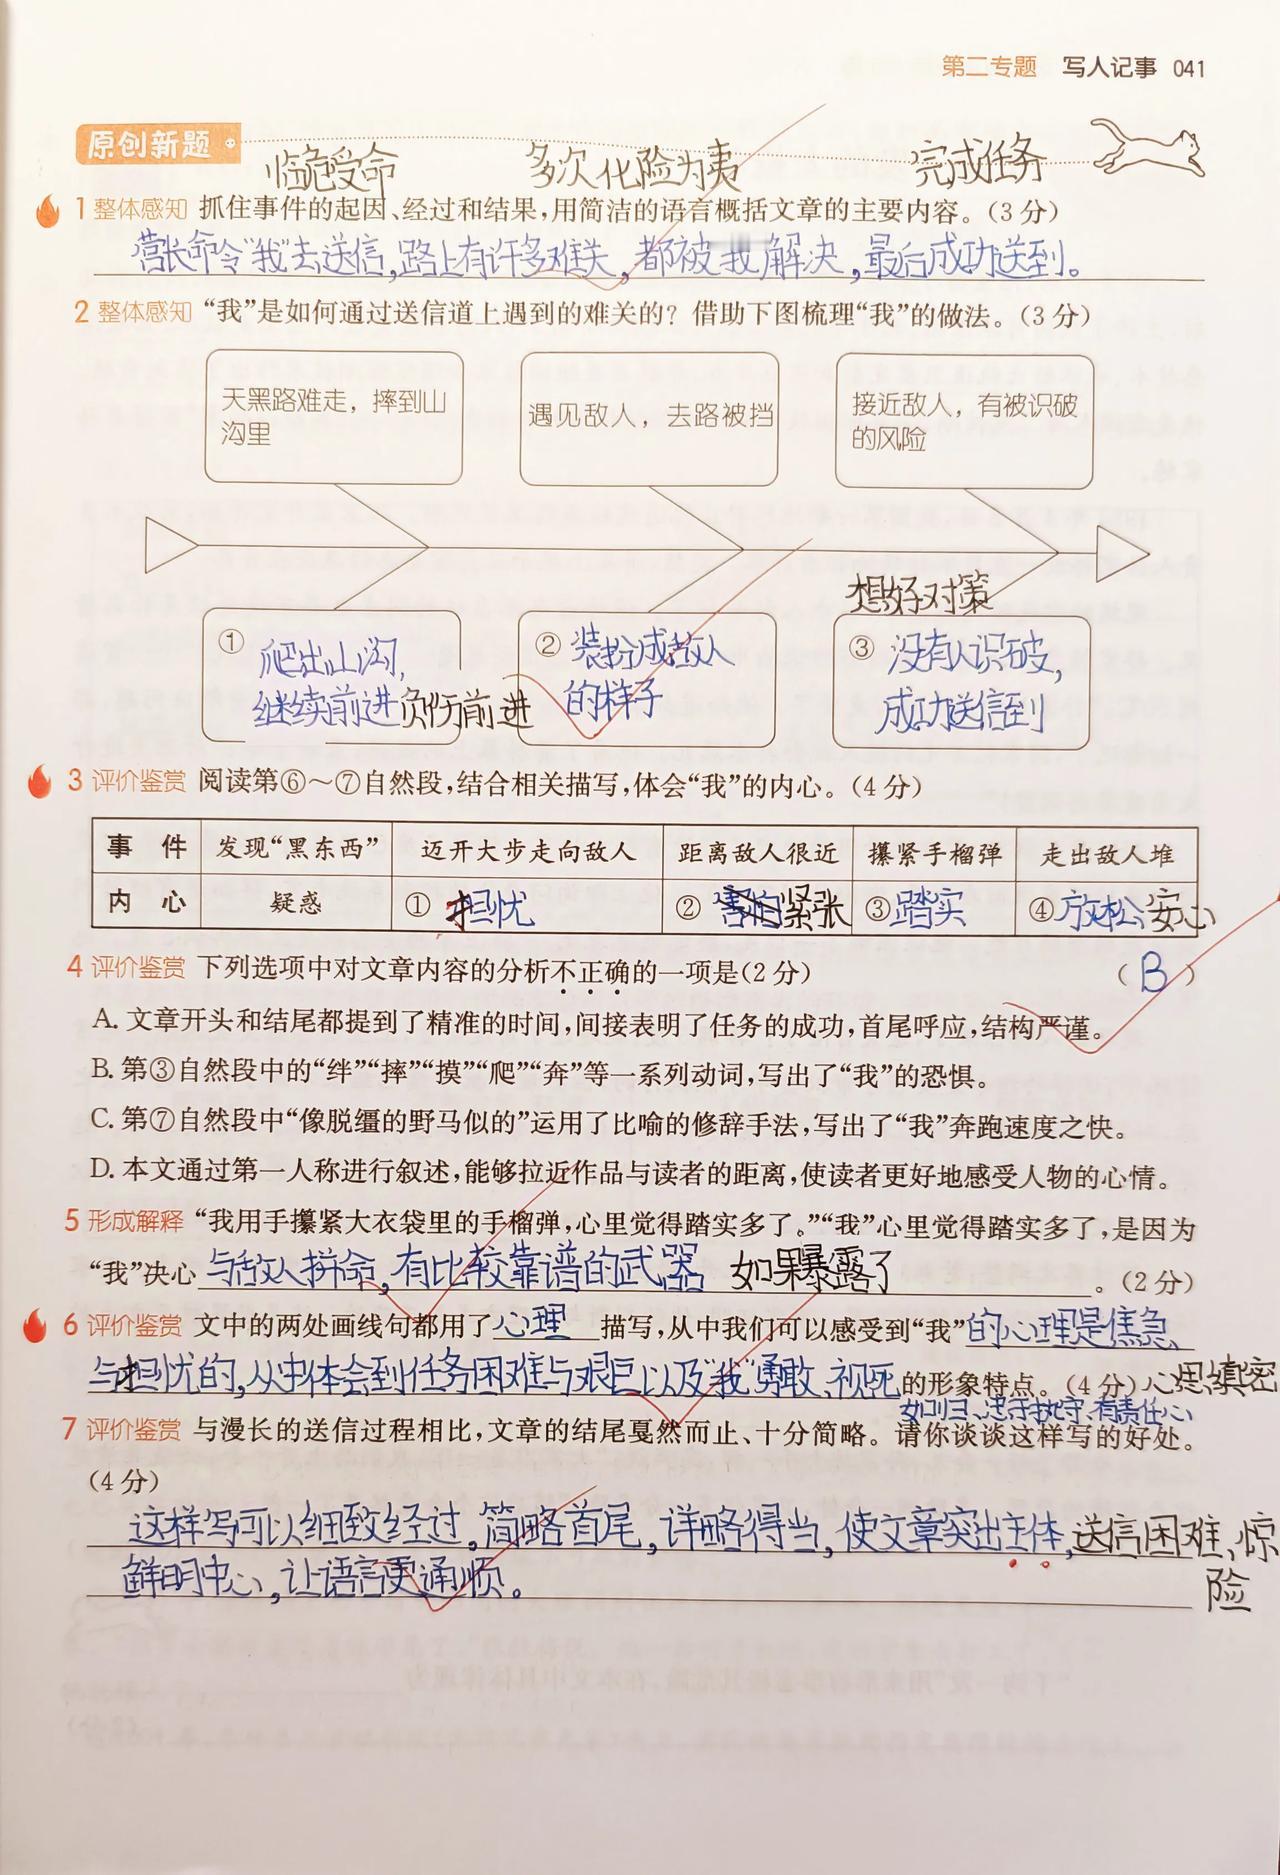 第二专题 写人记事 041
原创新题
临危受命 多次化险为夷 完成任务
1 整体感知 抓住事件的起因、经过和结果,用简洁的语言概括文章的主要内容。(3分)
营长命令"我"去送信,路上有许多难关,都被我解决,最后成功送到。
2 整体感知 “我”是如何通过送信道上遇到的难关的？借助下图梳理“我”的做法。(3分)
天黑路难走，摔到山沟里
遇见敌人，去路被挡
接近敌人，有被识破的风险
想好对策
① 爬出山沟,
继续前进 负伤前进
② 装扮成敌人
的样子
③ 没有人识破,
成功送信到
3 评价鉴赏 阅读第⑥～⑦自然段,结合相关描写,体会“我”的内心。(4分)
事件 发现“黑东西” 迈开大步走向敌人 距离敌人很近 攥紧手榴弹 走出敌人堆
内心 疑惑 ① 担忧 ② 害怕 紧张 ③ 踏实 ④ 放松、安心
4 评价鉴赏 下列选项中对文章内容的分析不正确的一项是(2分) ( B )
A. 文章开头和结尾都提到了精准的时间,间接表明了任务的成功,首尾呼应,结构严谨。
B. 第③自然段中的“绊”“摔”“摸”“爬”“奔”等一系列动词,写出了“我”的恐惧。
C. 第⑦自然段中“像脱缰的野马似的”运用了比喻的修辞手法,写出了“我”奔跑速度之快。
D. 本文通过第一人称进行叙述,能够拉近作品与读者的距离,使读者更好地感受人物的心情。
5 形成解释 “我用手攥紧大衣袋里的手榴弹,心里觉得踏实多了。”“我”心里觉得踏实多了,是因为
“我”决心 与敌人拼命,有比较靠谱的武器 如果暴露了 。(2分)
6 评价鉴赏 文中的两处画线句都用了 心理 描写,从中我们可以感受到“我” 的心理是焦急、
与担忧的,从中体会到任务困难与艰巨以及"我"勇敢、视死 的形象特点。(4分) 心思缜密
如归、忠于职守、有责任心
7 评价鉴赏 与漫长的送信过程相比,文章的结尾戛然而止、十分简略。请你谈谈这样写的好处。
(4分)
这样写可以细致经过,简略首尾,详略得当,使文章突出主体,送信困难、惊
鲜明中心,让语言更通顺。 险